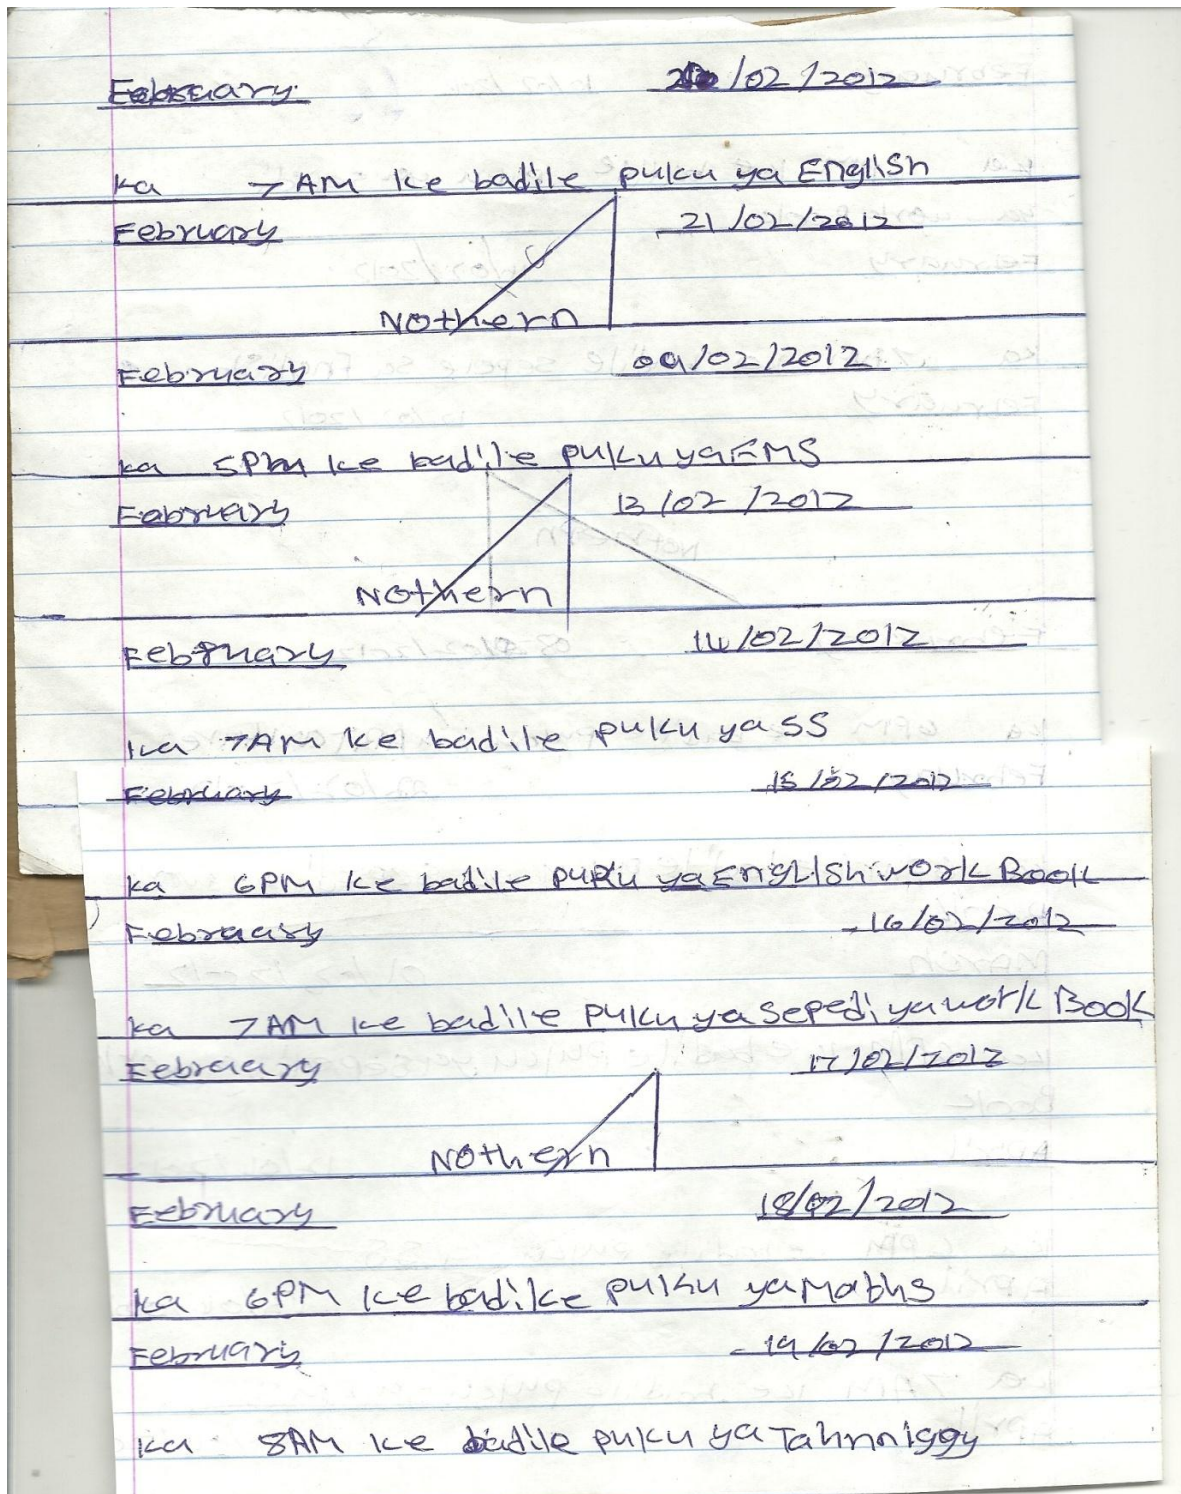 February 20/02/2012
ka 7AM ke badile puku ya English
February 21/02/2012
Nothern
February 09/02/2012
ka 5PM ke badile puku ya EMS
February 13/02/2012
Nothern
February 14/02/2012
ka 7AM ke badile puku ya SS
February 15/02/2012
ka 6PM ke badile puku ya English work Book
February 16/02/2012
ka 7AM ke badile puku ya sepedi ya work Book
February 17/02/2012
Nothern
February 18/02/2012
ka 6PM ke badike puku ya Maths
February 19/02/2012
ka 8AM ke badile puku ya Tahnniggy